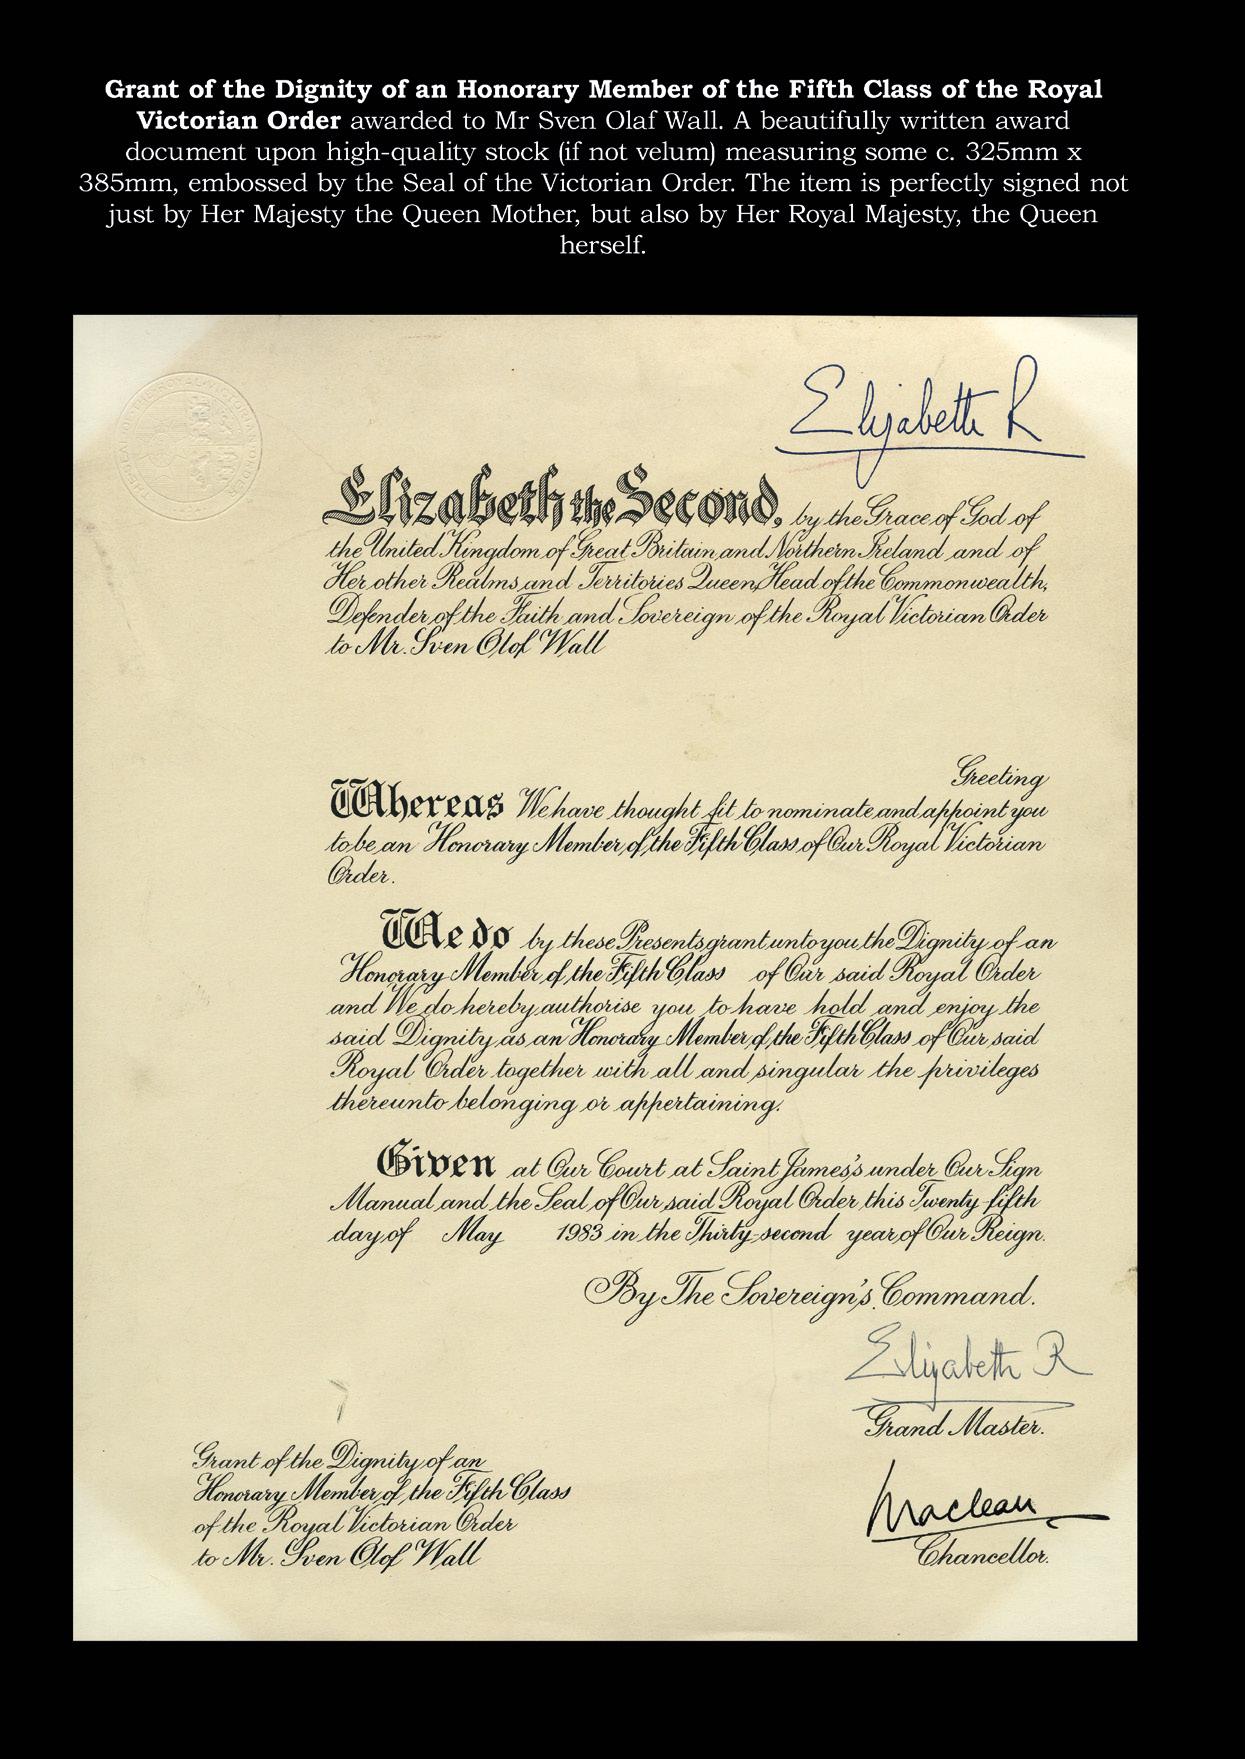 Grant of the Dignity of an Honorary Member of the Fifth Class of the Royal
Victorian Order awarded to Mr Sven Olaf Wall. A beautifully written award
document upon high-quality stock (if not velum) measuring some c. 325mm x
385mm, embossed by the Seal of the Victorian Order. The item is perfectly signed not
just by Her Majesty the Queen Mother, but also by Her Royal Majesty, the Queen
herself.
Elizabeth R
Elizabeth the Second, by the Grace of God of
the United Kingdom of Great Britain and Northern Ireland and of
Her other Realms and Territories Queen, Head of the Commonwealth,
Defender of the Faith and Sovereign of the Royal Victorian Order
to Mr. Sven Olof Wall
Greeting
Whereas We have thought fit to nominate and appoint you
to be an Honorary Member of the Fifth Class of Our Royal Victorian
Order.
We do by these Presents grant unto you the Dignity of an
Honorary Member of the Fifth Class of Our said Royal Order
and We do hereby authorise you to have hold and enjoy the
said Dignity as an Honorary Member of the Fifth Class of Our said
Royal Order together with all and singular the privileges
thereunto belonging or appertaining.
Given at Our Court at Saint James's under Our Sign
Manual and the Seal of Our said Royal Order this Twenty-fifth
day of May 1983 in the Thirty-second year of Our Reign.
By The Sovereign's Command.
Elizabeth R
Grand Master.
Maclean
Chancellor.
Grant of the Dignity of an
Honorary Member of the Fifth Class
of the Royal Victorian Order
to Mr. Sven Olof Wall